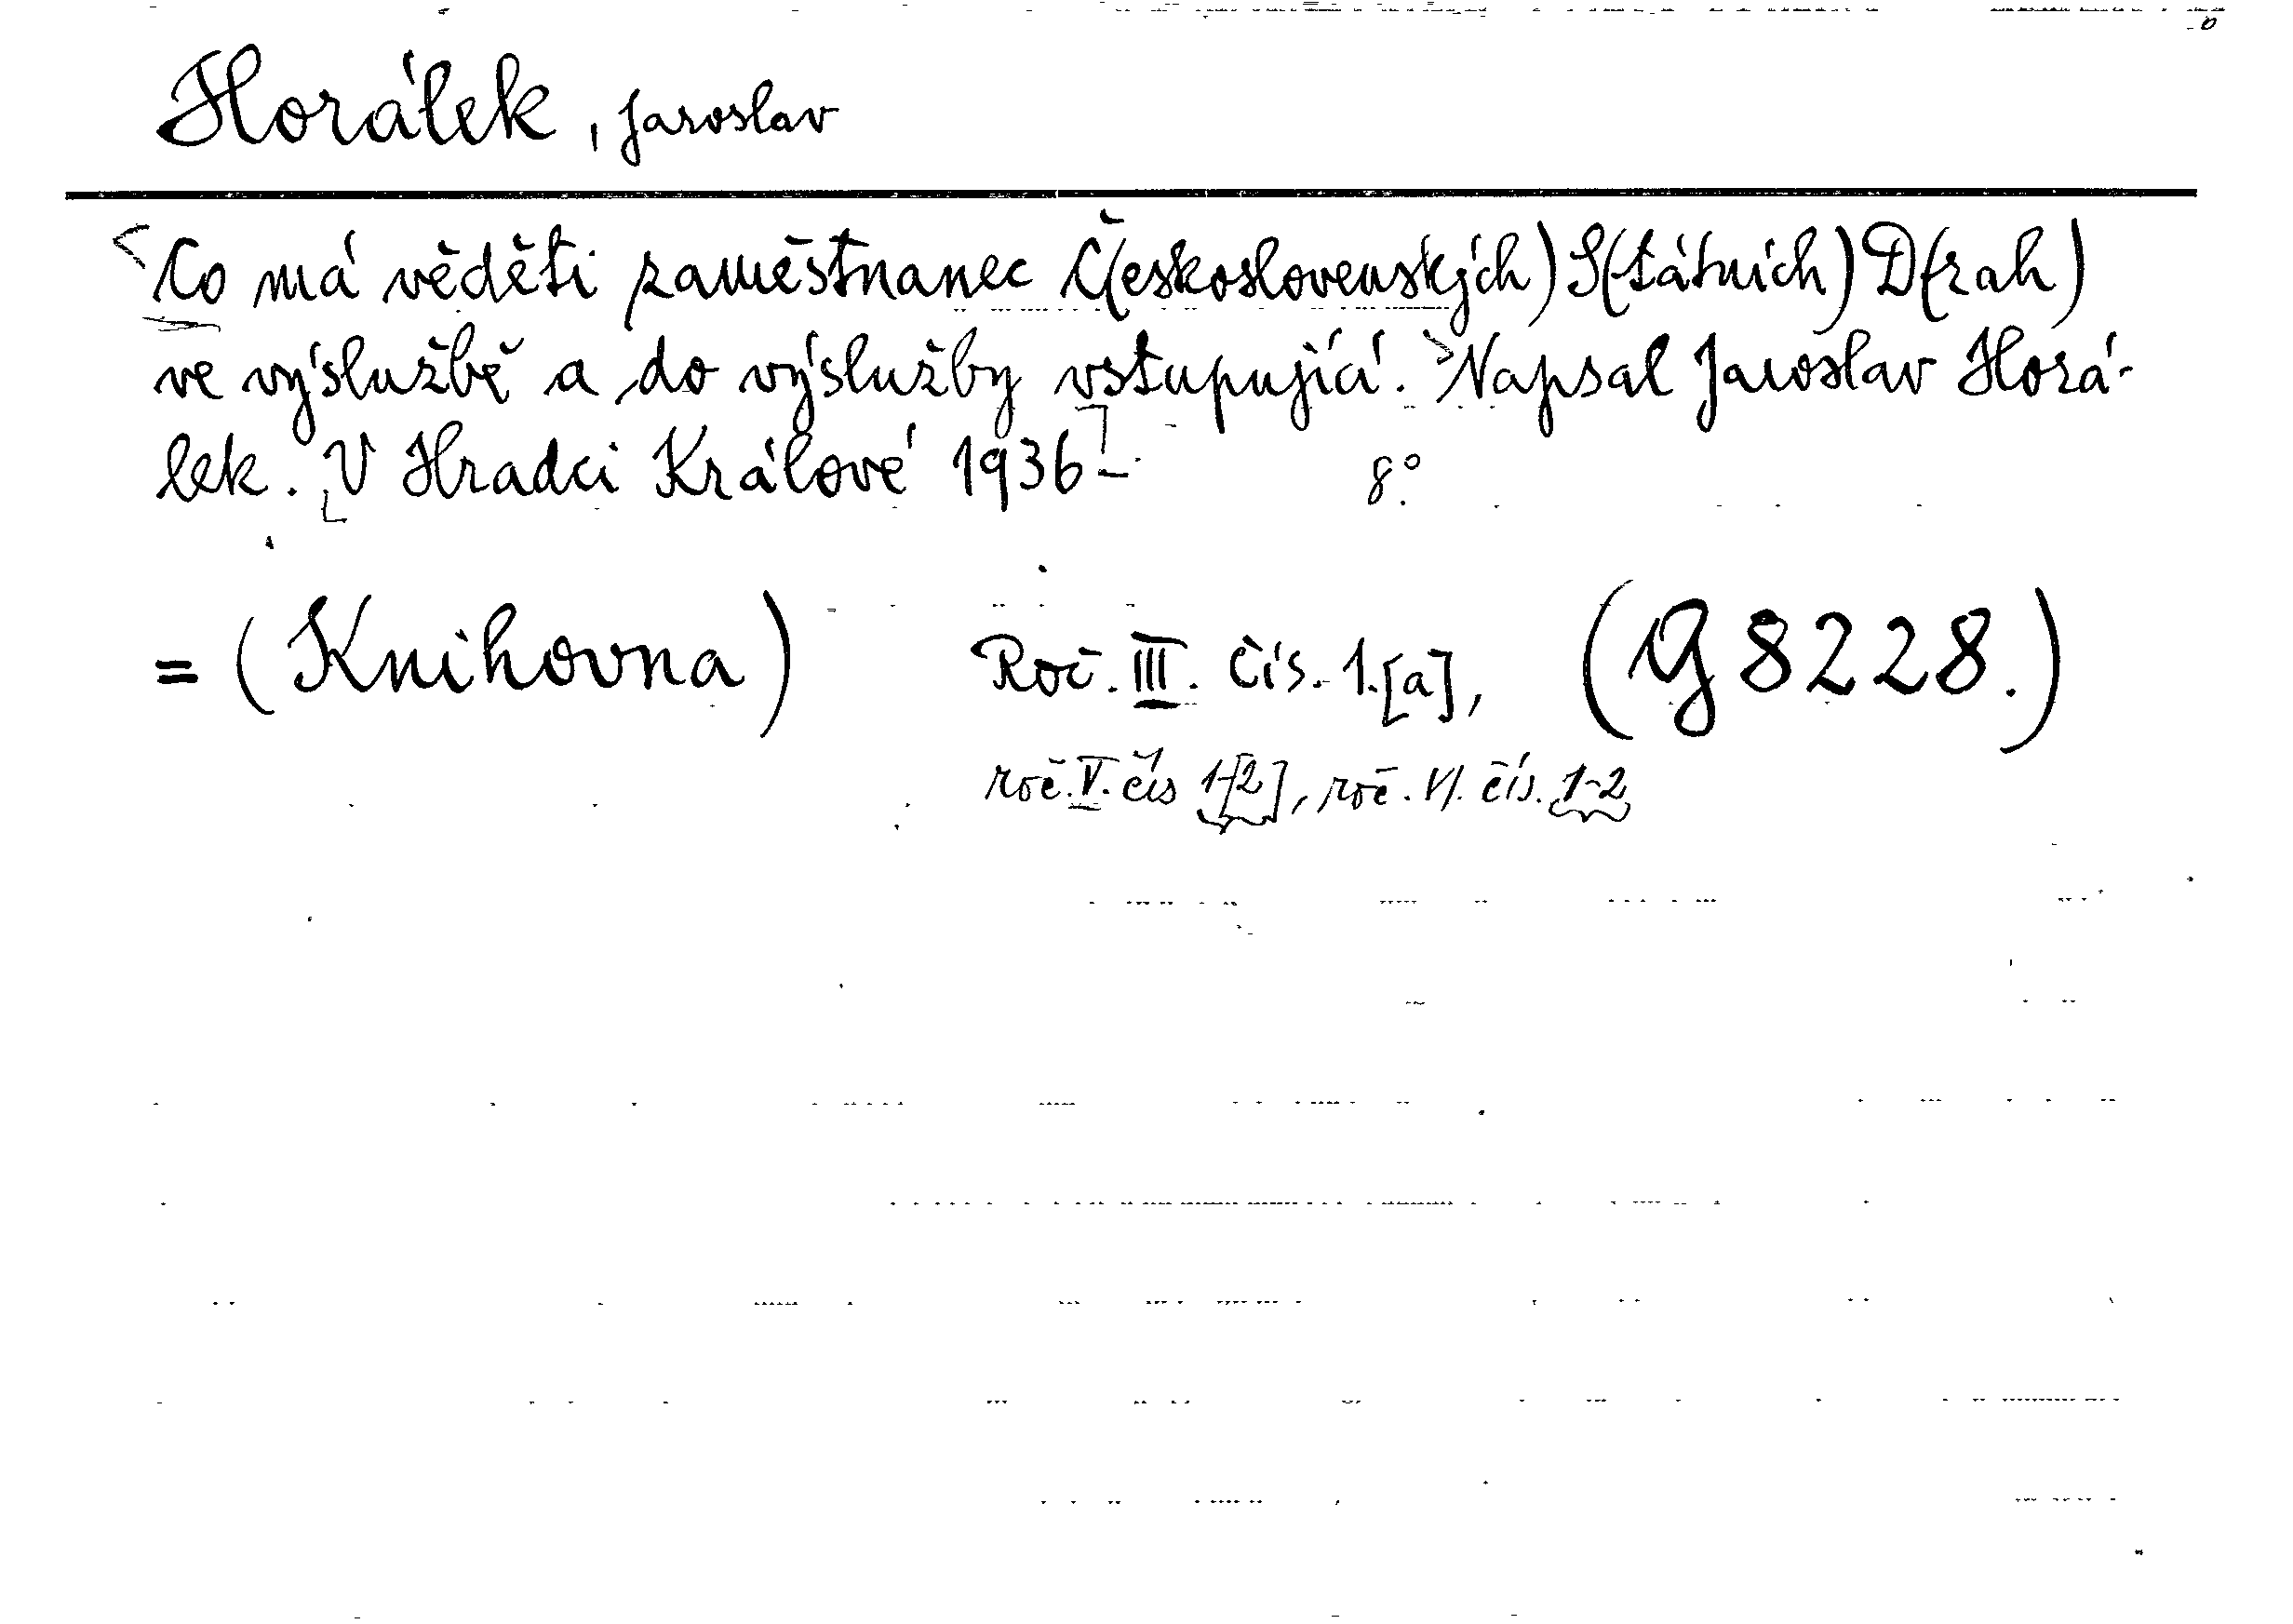 Horálek, Jaroslav
<Co má věděti zaměstnanec Č(eskoslovenských) S(tátních) D(rah)
ve výslužbě a do výslužby vstupující.> Napsal Jaroslav Horá-
lek. [V Hradci Králové 1936]- 8°.
= (Knihovna) Roč. III. Čís. 1.[a], (G 8228.)
roč. V. čís 1-[2], roč. VI. čís. 1-2